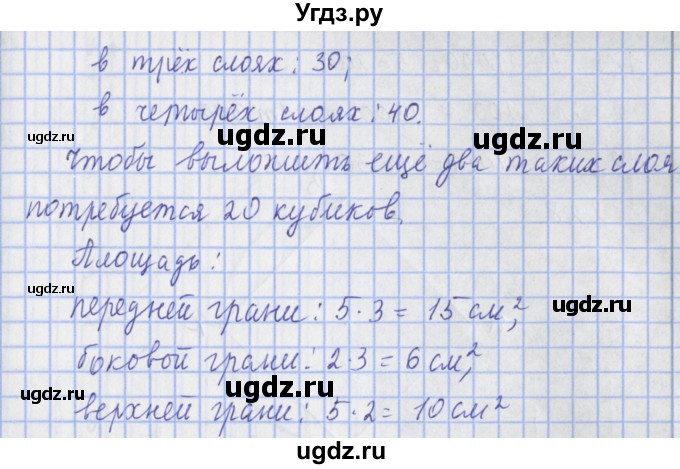 Угдз.ру
в трёх слоях: 30;
в четырёх слоях: 40.
ugdz.ru ugdz.ru ugdz.ru
Чтобы выложить ещё два таких слоя
потребуется 20 кубиков.
ugdz.ru ugdz.ru
Площадь:
ugdz.ru ugdz.ru
передней грани: 5·3 = 15 см²,
боковой грани: 2·3 = 6 см²,
ugdz.ru ugdz.ru ugdz.ru
верхней грани: 5·2 = 10 см²
ugdz.ru